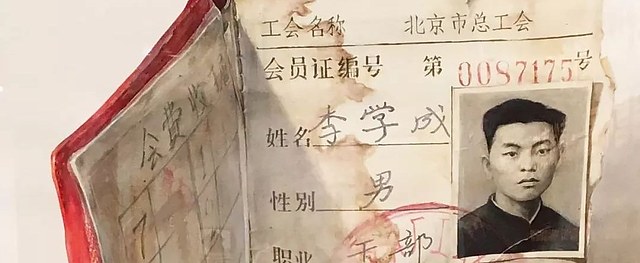 会费收
工会名称 北京市总工会
会员证编号 第0087175号
姓名 李学成
性别 男
职业 干部